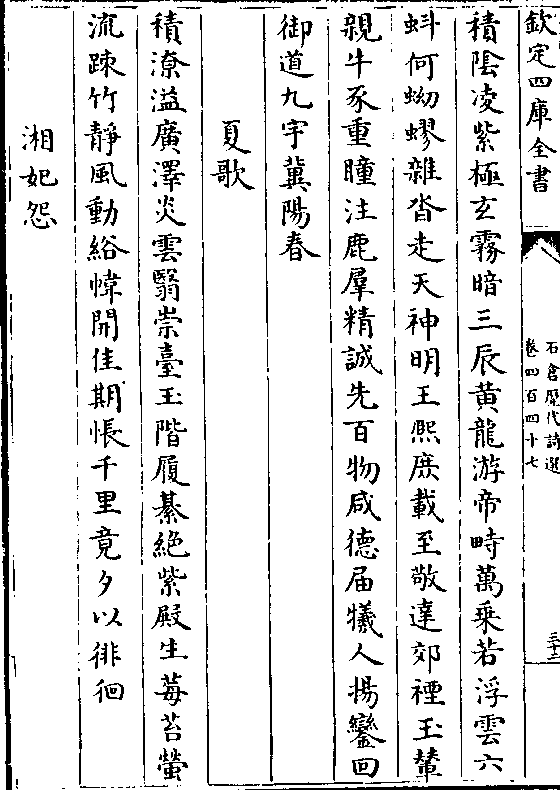 欽定四庫全書
石倉歷代詩選
卷四百四十七
三十二
積陰凌紫極玄霧暗三辰黄龍游帝畤萬乗若浮雲六
蚪何蚴蟉雜沓走天神明王熙庶載至敬達郊禋玉輦
親牛豕重瞳注鹿羣精誠先百物咸德届犧人揚鑾回
御道九宇冀陽春
夏歌
積潦溢廣澤炎雲翳崇臺玉階履綦絶紫殿生莓苔螢
流疎竹靜風動綌幃開佳期悵千里竟夕以徘徊
湘妃怨